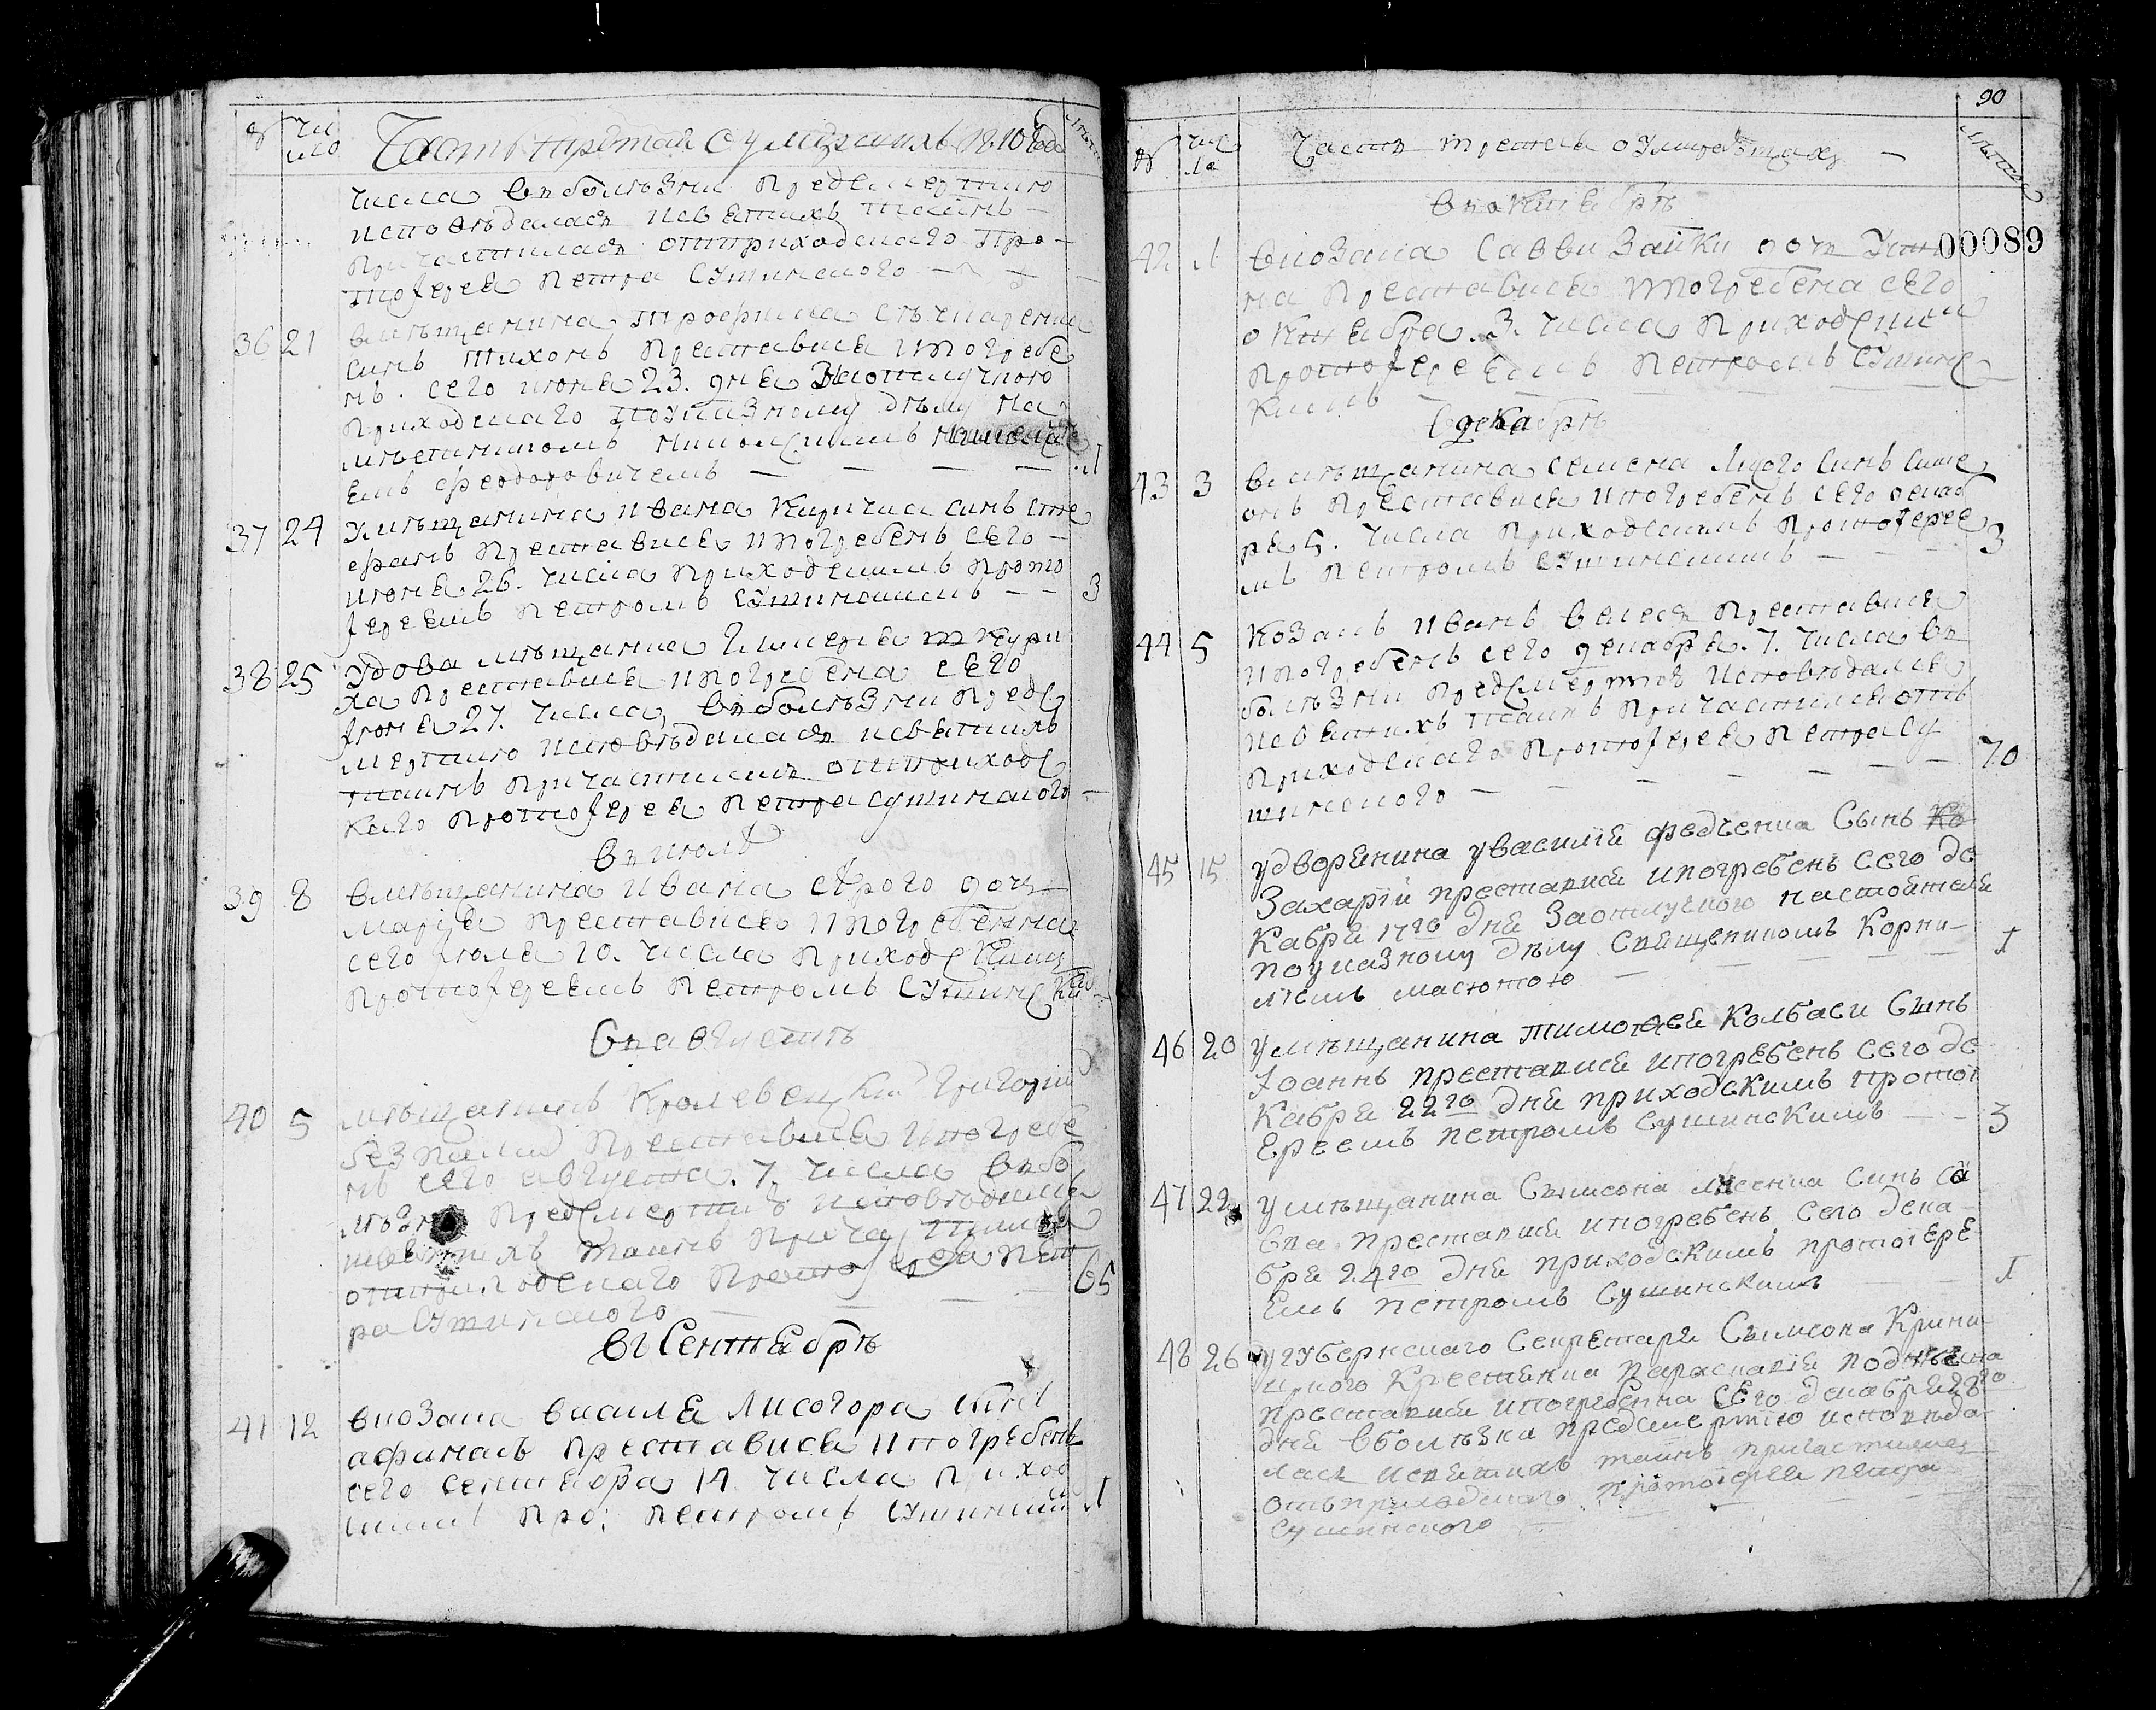 № Чи
сло
Часть третая О умерших 1810 года
Лѣта
числа вп болѣзни предсмертною
исповѣдалася исвятихъ таинъ
причастилася отприходскаго про-
тоіерея Петра Сушинского
36 21
вмѣщанина Трофима
синъ Тихонъ преставися ипогребе
нъ. сего июня 23. дня Заотлучкою
приходскаго поуказному дѣлу на
мѣстникомъ
емъ Феодоровичемъ 1
37 24 Умѣщанина Ивана Кирила синъ Сте
фанъ преставися ипогребенъ сего
июня 26. числа приходскимъ прото
іереемъ Петромъ Сушинскимъ 3
38 25 Удова мѣщанка
ха преставися ипогребена сего
іюня 27. числа, вп болѣзни пред
смертною исповѣдалася исвятихъ
таинъ причастилася отприходс
каго протоіерея Петра Сушинского
вп июлѣ
39 8 вмѣщанина Ивана Сѣрого дочь
Марія преставися ипогребенна
сего іюля 10. числа приходским
протоіереемъ Петромъ Сушинским
вп августѣ
40 5 мѣщанинъ Кролевецкій Григорій
Безпалий преставися ипогребе
нъ сего августа. 7. числа вп бо
лѣзни предсмертной исповѣдался
исвятихъ таинъ причастился
отприходскаго протоіерея Пет
ра Сушинского 65
въ Сентябрѣ
41 12 вкозака Василя Лисогора синъ
Афанасъ преставися ипогребенъ
сего сентября 14. числа приход
скимъ про: Петромъ Сушинским 1
90
№ Чис
ла
Часть третья оУмиравшихъ
Лѣта
00089
вп октябрѣ
42 1 вкозака Саввы Зайки дочь Усти
на преставися ипогребена сего
октября. 3. числа приходским
протоіереемъ Петромъ Сушинс
кимъ
вдекабрѣ
43 3 вмѣщанина Семена Лущого синъ Симе
онъ преставися ипогребенъ сего декаб
ря 5. числа приходскимъ протоіерее
мъ Петромъ Сушинскимъ 3
44 5 Козакъ Иванъ преставися
ипогребенъ сего декабря. 7. числа вп
болѣзни предсмертной исповѣдался
исвятихъ таинъ причастился отъ
приходскаго протоіерея Петра Су
шинского 70
45 15 удворянина уВасилія Федченка Сынъ
Захарій преставися ипогребенъ сего де
кабря 17го дня Заотлучкою настоятеля
поуказному дѣлу Священикомъ Корни-
ліемъ Масютою 1
46 20 умѣщанина Тимоѳея Колбаси Сынъ
Іоаннъ преставися ипогребенъ сего де
кабря 22го дня приходскимъ протоі
ереемъ Петромъ Сушинскимъ 3
47 22 умѣщанина Сѵмеона Лисенка синъ Са
ва преставися ипогребенъ сего дека
бря 24го дня приходскимъ протоіере
емъ Петромъ Сушинскимъ 1
48 26 угубернскаго секретаря Сѵмеона Крини
чного Крестянка Параскавія
преставися ипогребенна сего декабря 28го
дня вболѣзни предсмертною исповѣда
лась исвятихъ таинъ причастилась
отъприходскаго протоіерея Петра
Сушинского